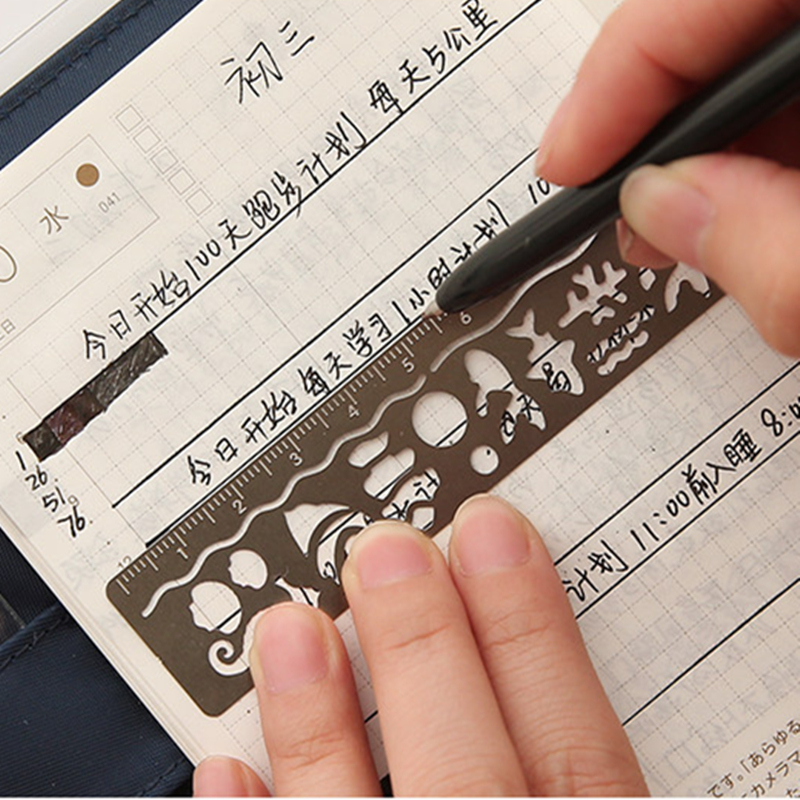 初三
水
041
今日开始100天跑步计划 每天5公里
今日开始每天学习1小时计划 10
计划 11:00前入睡 8:0
1
26
51
76
1 2 3 4 5 6
です。「あらゆる
カメラマ